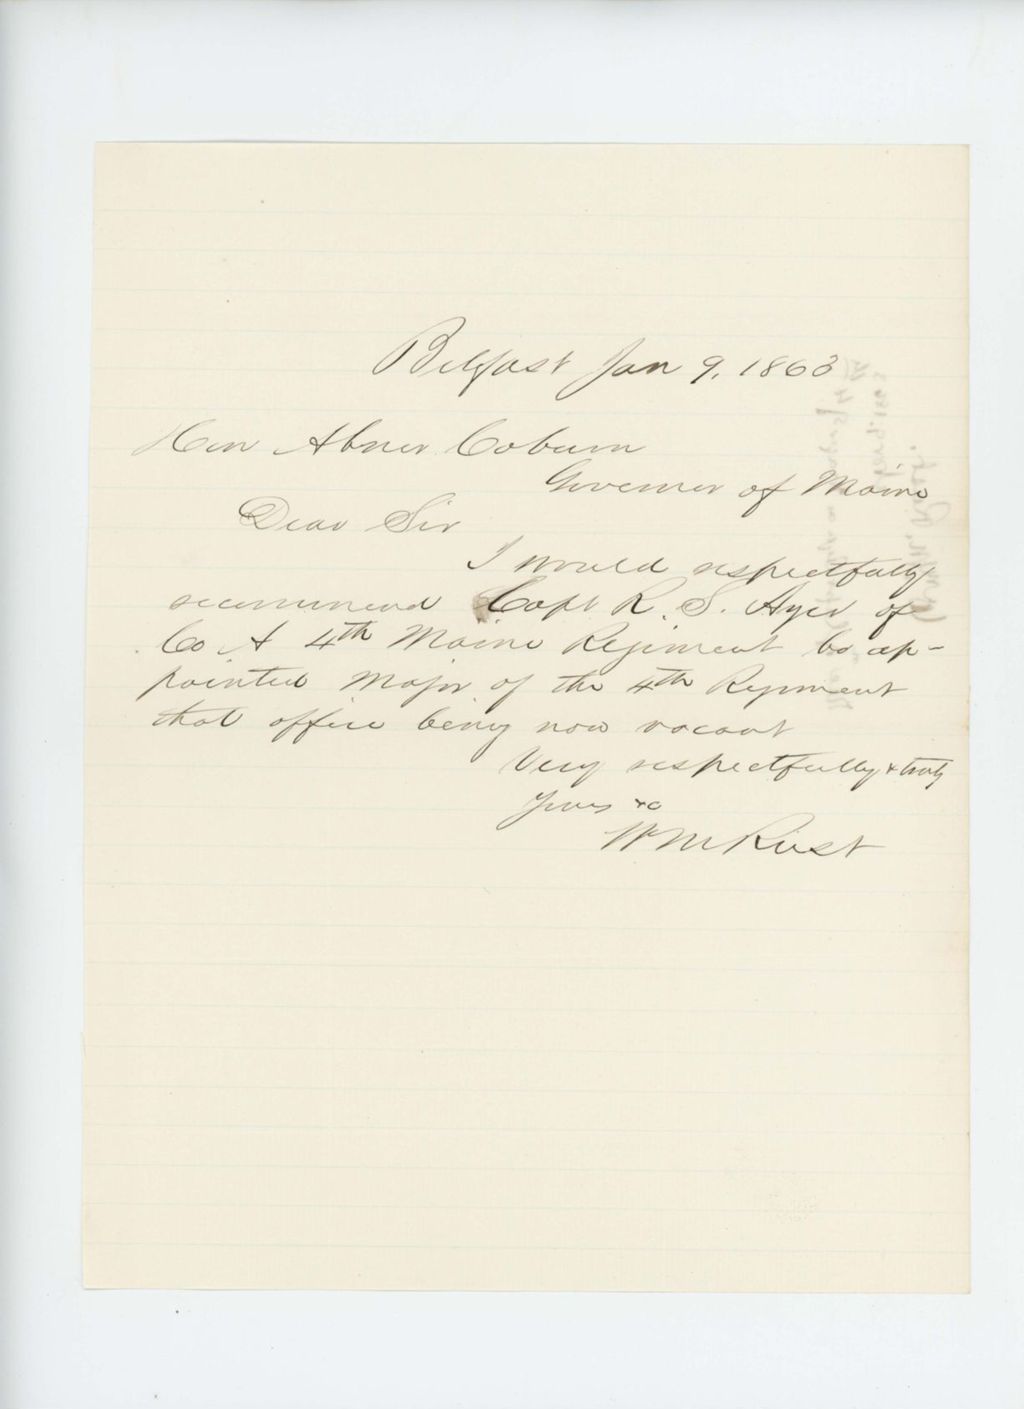 Belfast Jan 9, 1863
Hon Abner Coburn
Governor of Maine
Dear Sir
I would respectfully
recommend Capt R. S. Ayer of
Co A 4th Maine Regiment be ap-
pointed Major of the 4th Regiment
that office being now vacant
Very respectfully & truly
Yours &c
Wm Rust